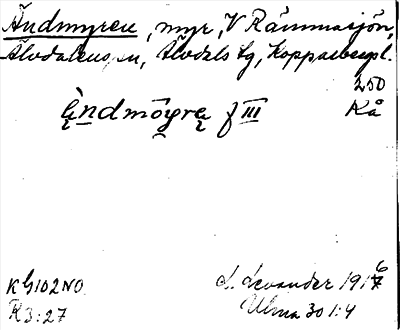 Ändmyren, myr, V Rämmasjön,
Älvdalens sn, Älvdals tg, Kopparbergs l.
250
Kå
ę̀ndmōyrę f III
K G102NO
R3:27
L. Levander 1916
Ulma 30 1:4